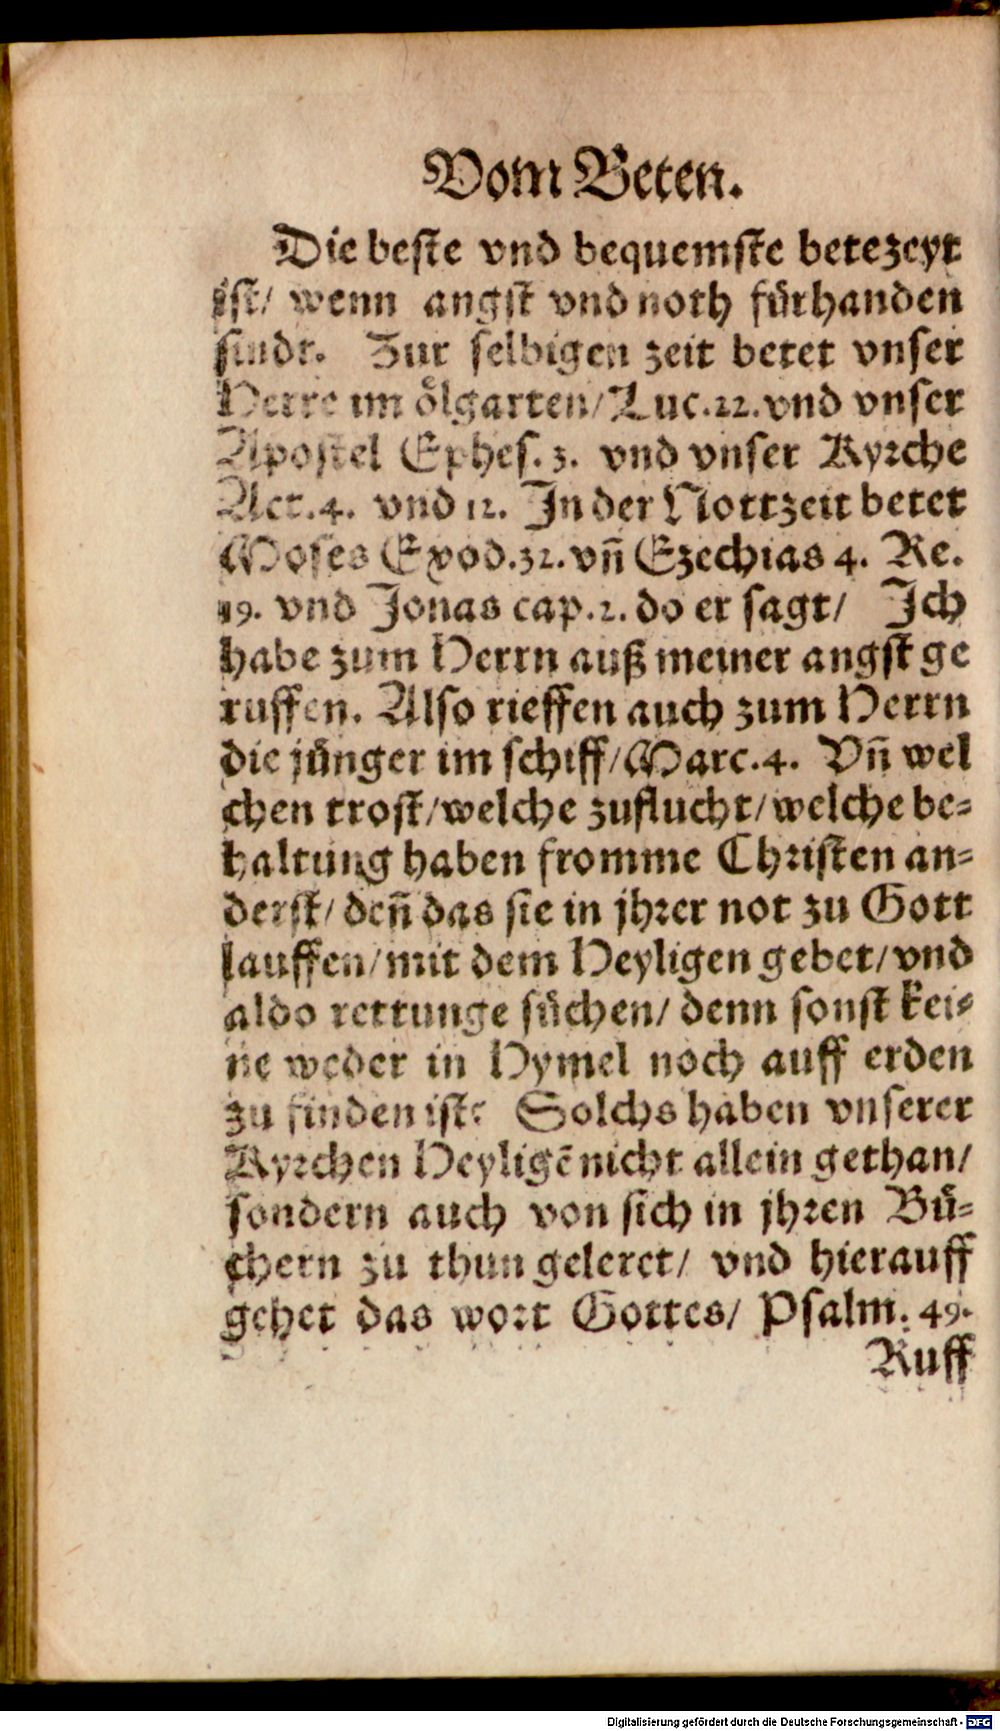 Vom Beten.
Die beste vnd bequemste betezeyt
ist/ wenn angst vnd noth fürhanden
sindt. Zur selbigen zeit betet vnser
Herre im ölgarten/ Luc. 22. vnd vnser
Apostel Ephes. 3. vnd vnser Kyrche
Act. 4. vnd 12. In der Nottzeit betet
Moses Exod. 32. vñ Ezechias 4. Re.
19. vnd Jonas cap. 2. do er sagt/ Ich
habe zum Herrn auß meiner angst ge
ruffen. Also rieffen auch zum Herrn
die jünger im schiff/ Marc. 4. Vñ wel
chen trost/ welche zuflucht/ welche be=
haltung haben fromme Christen an=
derst/ deñ das sie in jhrer not zu Gott
lauffen/ mit dem Heyligen gebet/ vnd
aldo rettunge süchen/ denn sonst kei=
ne weder in Hymel noch auff erden
zu finden ist: Solchs haben vnserer
Kyrchen Heyligẽ nicht allein gethan/
sondern auch von sich in jhren Bü=
chern zu thun geleret/ vnd hierauff
gehet das wort Gottes/ Psalm. 49.
Ruff
Digitalisierung gefördert durch die Deutsche Forschungsgemeinschaft - DFG